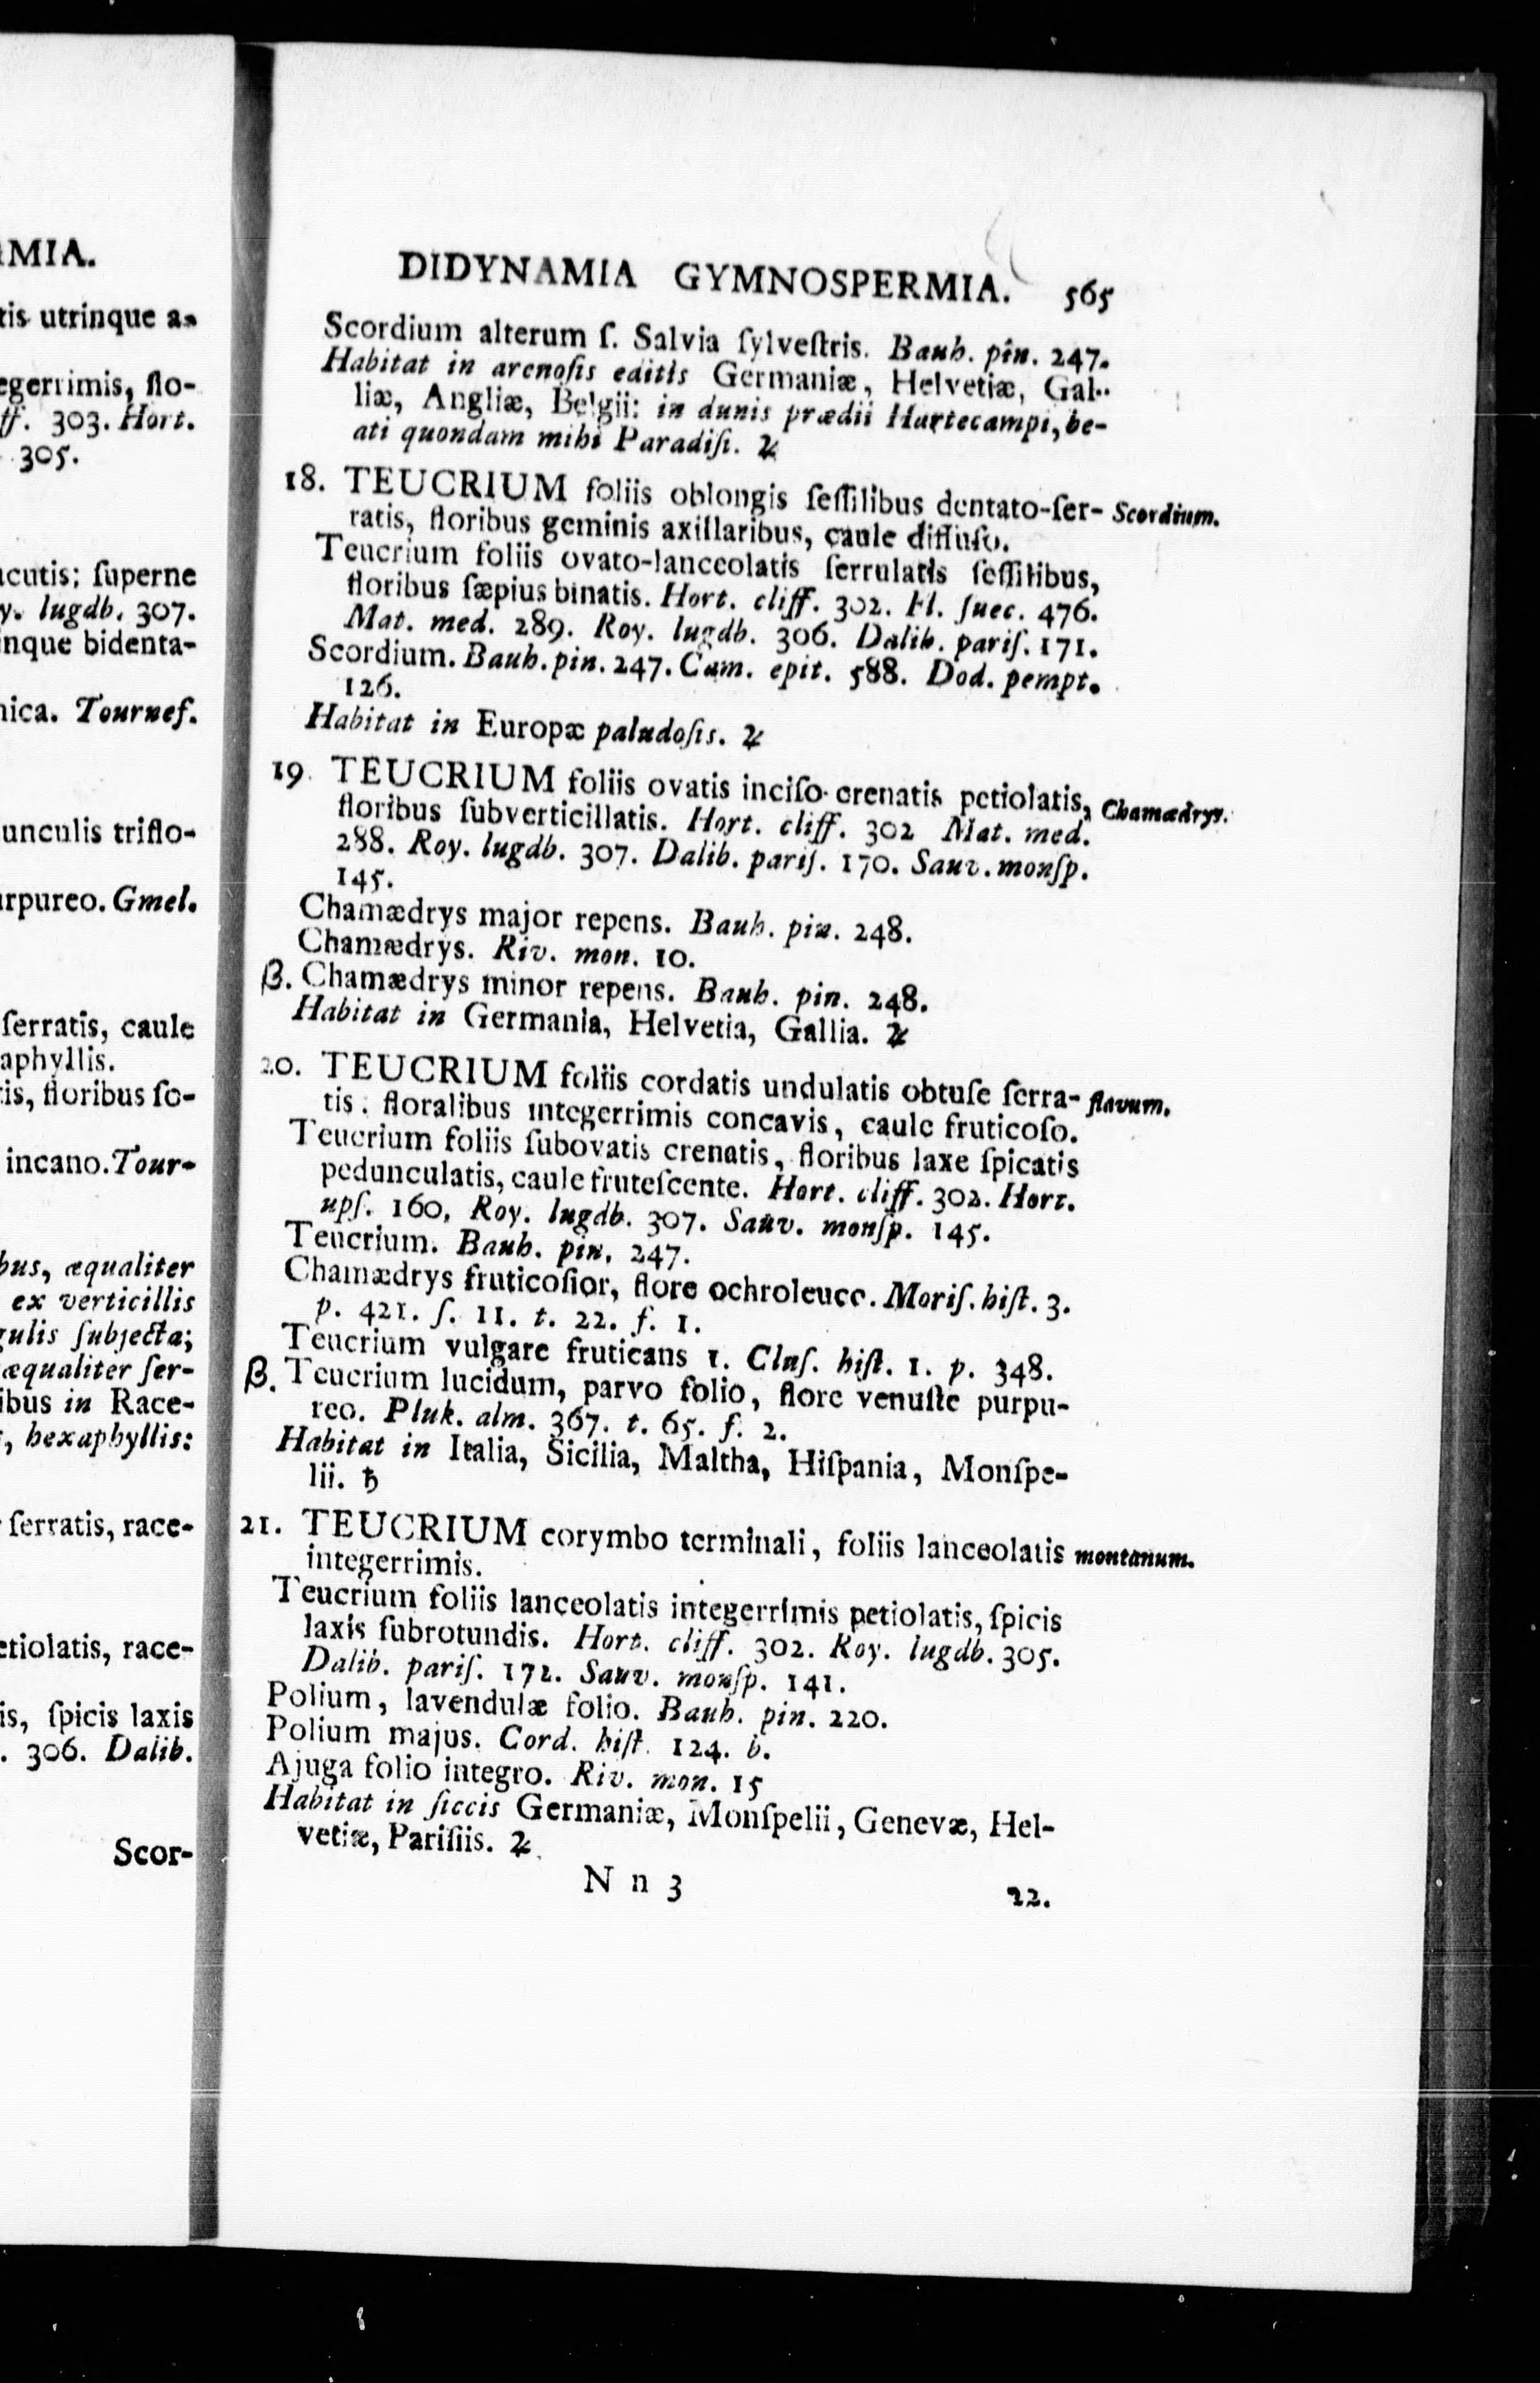 MIA.
tis utrinque a-
egerrimis, flo-
ff. 303. Hort.
305.
acutis; ſuperne
y. lugdb. 307.
inque bidenta-
nica. Tournef.
unculis triflo-
urpureo. Gmel.
ſerratis, caule
aphyllis.
tis, floribus ſo-
incano. Tour-
bus, æqualiter
ex verticillis
gulis ſubjecta;
æqualiter ſer-
ibus in Race-
, hexaphyllis:
ſerratis, race-
etiolatis, race-
is, ſpicis laxis
. 306. Dalib.
Scor-
DIDYNAMIA GYMNOSPERMIA. 565
Scordium alterum ſ. Salvia ſylveſtris. Bauh. pin. 247.
Habitat in arenoſis editis Germaniæ, Helvetiæ, Gal-
liæ, Angliæ, Belgii: in dunis prædii Hartecampi, be-
ati quondam mihi Paradiſi. ♃
18. TEUCRIUM foliis oblongis ſeſſilibus dentato-ſer- Scordium.
ratis, floribus geminis axillaribus, caule diffuſo.
Teucrium foliis ovato-lanceolatis ſerrulatis ſeſſilibus,
floribus ſæpius binatis. Hort. cliff. 302. Fl. ſuec. 476.
Mat. med. 289. Roy. lugdb. 306. Dalib. pariſ. 171.
Scordium. Bauh. pin. 247. Cam. epit. 588. Dod. pempt.
126.
Habitat in Europæ paludoſis. ♃
19. TEUCRIUM foliis ovatis inciſo-crenatis petiolatis, Chamædrys.
floribus ſubverticillatis. Hort. cliff. 302 Mat. med.
288. Roy. lugdb. 307. Dalib. pariſ. 170. Sauv. monſp.
145.
Chamædrys major repens. Bauh. pin. 248.
Chamædrys. Riv. mon. 10.
β. Chamædrys minor repens. Bauh. pin. 248.
Habitat in Germania, Helvetia, Gallia. ♃
20. TEUCRIUM foliis cordatis undulatis obtuſe ſerra- flavum.
tis: floralibus integerrimis concavis, caule fruticoſo.
Teucrium foliis ſubovatis crenatis, floribus laxe ſpicatis
pedunculatis, caule fruteſcente. Hort. cliff. 302. Hort.
upſ. 160, Roy. lugdb. 307. Sauv. monſp. 145.
Teucrium. Bauh. pin. 247.
Chamædrys fruticoſior, flore ochroleuco. Moriſ. hiſt. 3.
p. 421. ſ. 11. t. 22. f. 1.
Teucrium vulgare fruticans 1. Cluſ. hiſt. 1. p. 348.
β. Teucrium lucidum, parvo folio, flore venuſte purpu-
reo. Pluk. alm. 367. t. 65. f. 2.
Habitat in Italia, Sicilia, Maltha, Hiſpania, Monſpe-
lii. ♄
21. TEUCRIUM corymbo terminali, foliis lanceolatis montanum.
integerrimis.
Teucrium foliis lanceolatis integerrimis petiolatis, ſpicis
laxis ſubrotundis. Hort. cliff. 302. Roy. lugdb. 305.
Dalib. pariſ. 172. Sauv. monſp. 141.
Polium, lavendulæ folio. Bauh. pin. 220.
Polium majus. Cord. hiſt. 124. b.
Ajuga folio integro. Riv. mon. 15
Habitat in ſiccis Germaniæ, Monſpelii, Genevæ, Hel-
vetiæ, Pariſiis. ♃
N n 3 22.